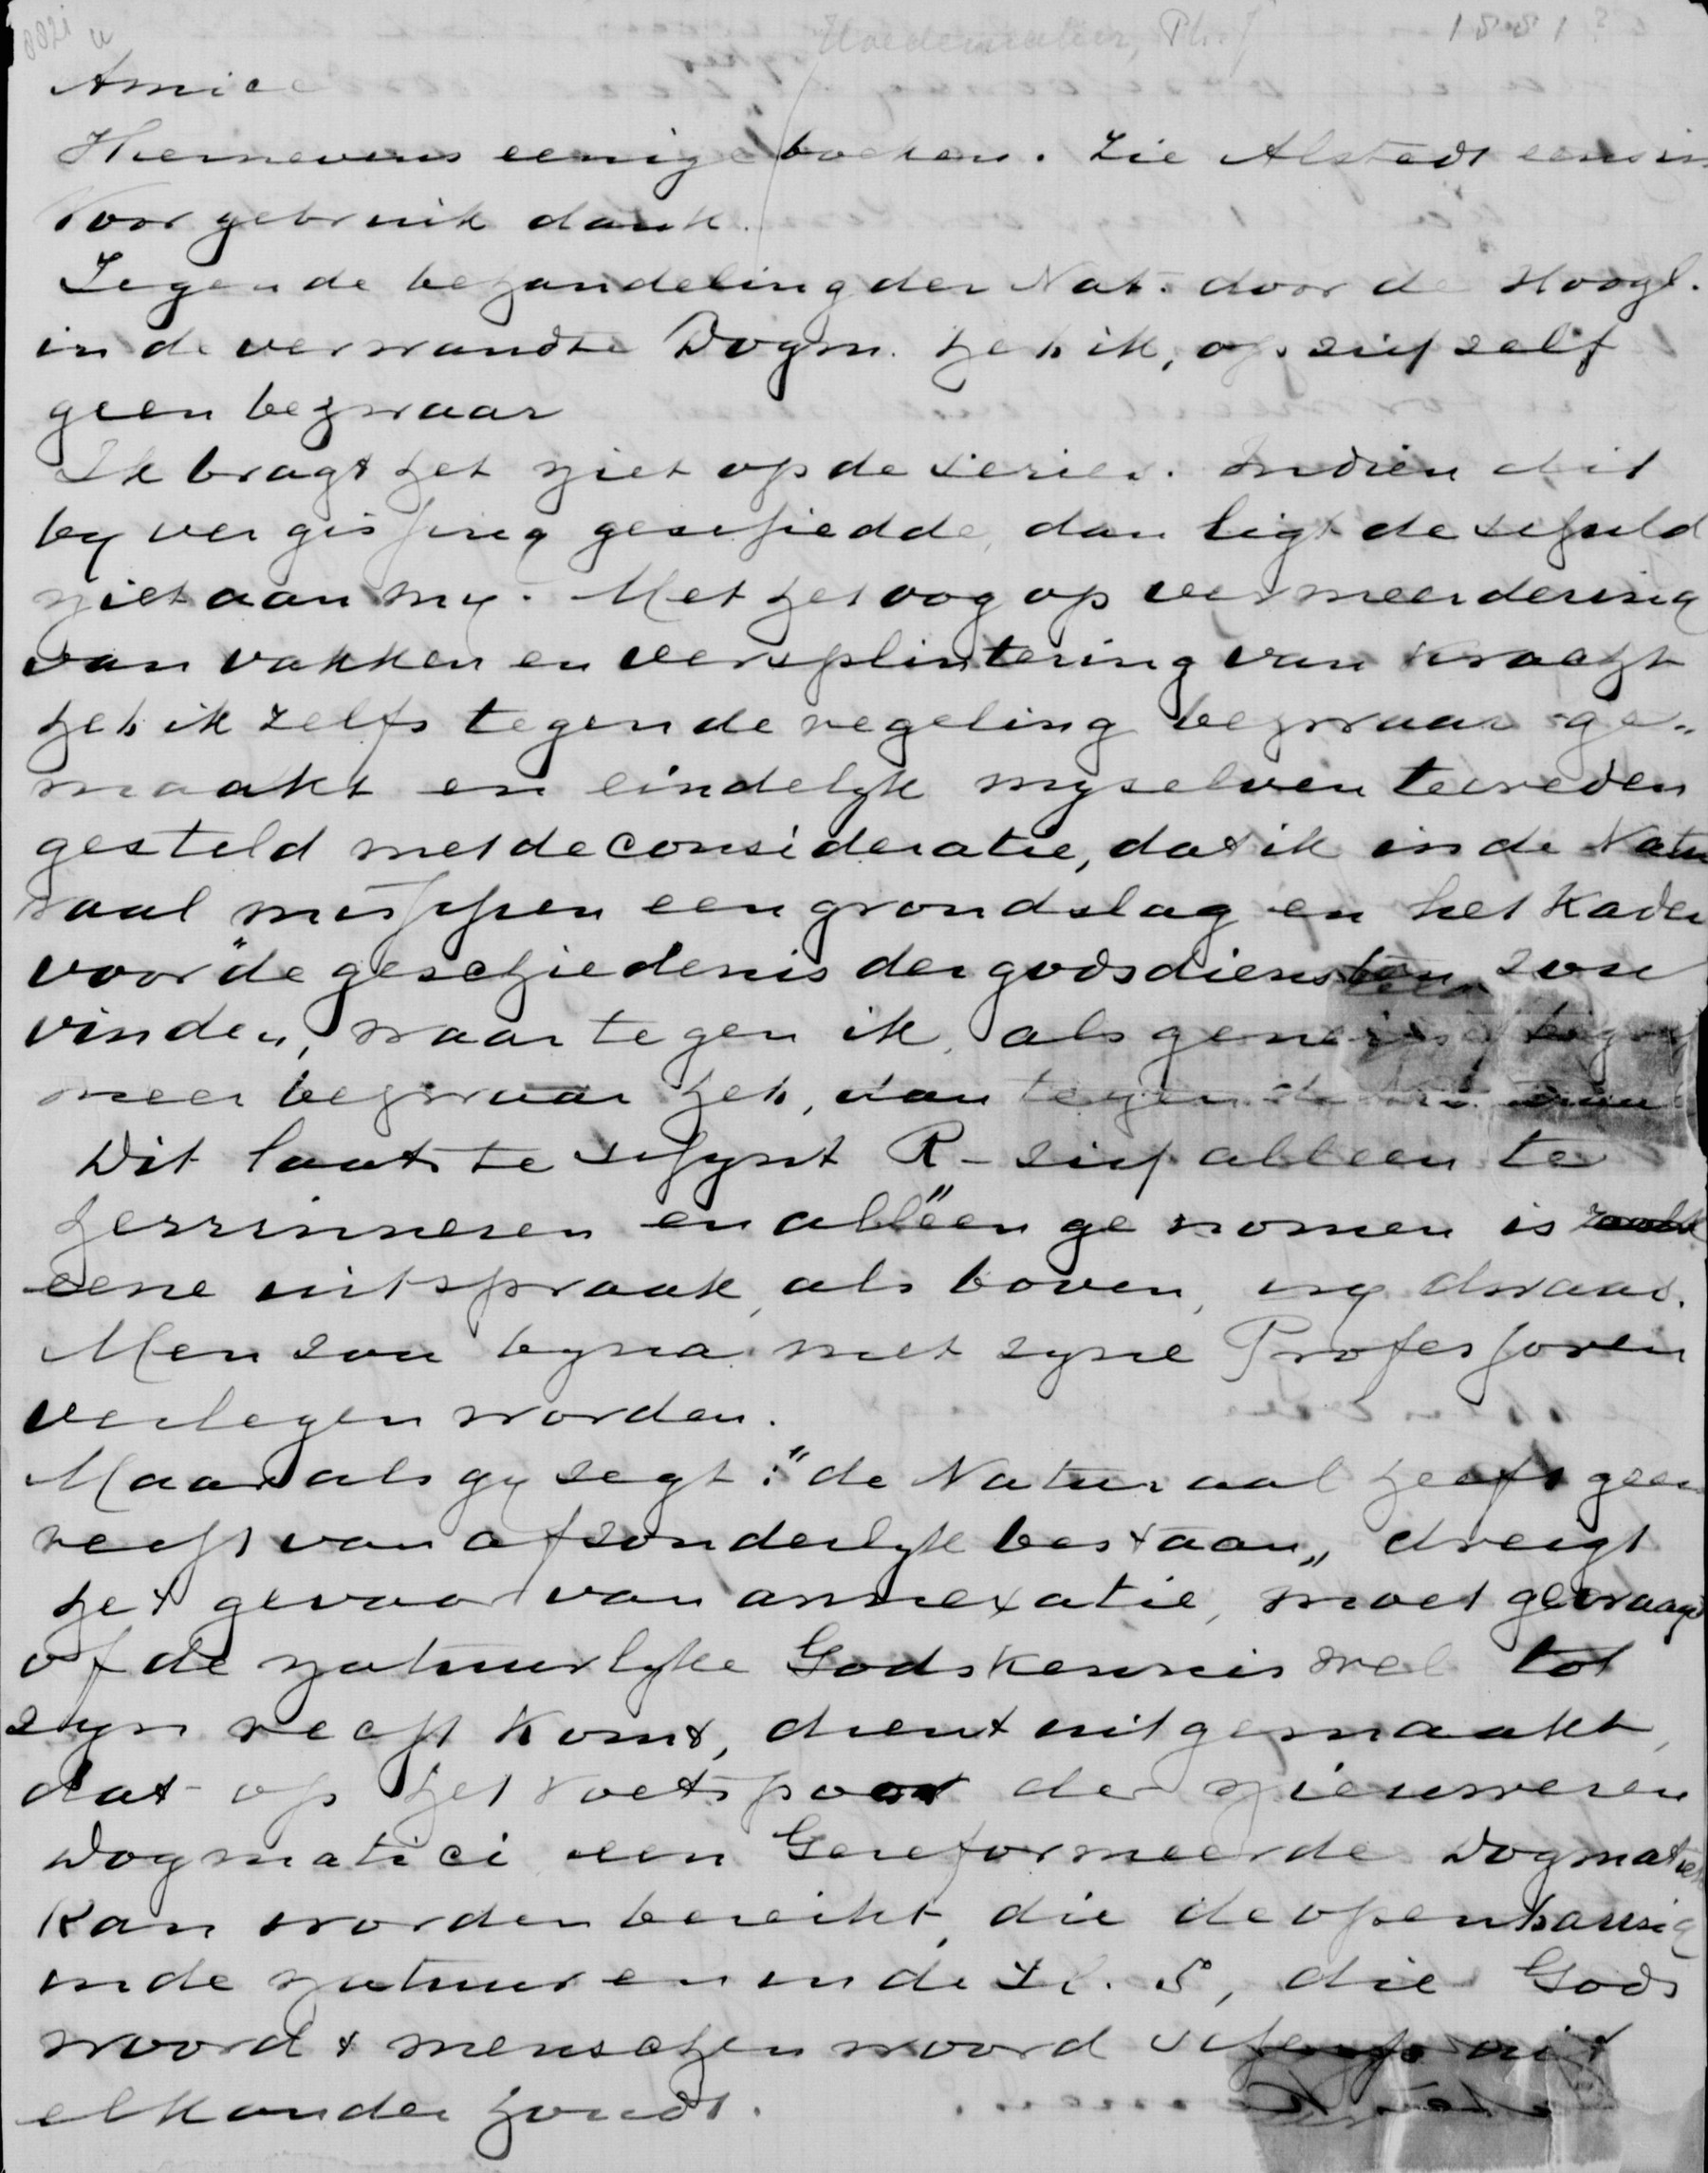 Hoedemaker, Ph. J
1881
Amice
Hiernevens eenige boeken. Zie Alstedt eens in
Voor gebruik dank.
Tegen de behandeling der Nat. door de Hoogl.
in de verwandte Dogm. heb ik, op sich self
geen bezwaar
Ik bragt het niet op de series. Indien dit
by vergissing geschiedde, dan ligt de schuld
niet aan my. Met het oog op vermeerdering
van vakken en versplintering van kracht
heb ik zelfs tegen de regeling bezwaar ge„
maakt en eindelyk myselven tevreden
gesteld met de consideratie, dat ik in de Natu
raal misschien een grondslag en het Kader
voor "de geschiedenis der godsdiensten zou
vinden, waartegen ik, als
meer bezwaar heb, dan tegen de
Dit laatste schynt R- sich alleen te
herrinneren en "alleen genomen is
eene uitspraak, als boven, my dwaas.
Men zou byna met zyne Professoren
verlegen worden.
Maar als gy segt: "de Naturaal heeft geen
recht van afsonderlyk bestaan„ dreigt
het gevaar van annexatie, moet gevraagd
of de natuurlyke Godskennis wel tot
zyn recht komt, dient uitgemaakt,
dat op het voetspoor der nieuweren
Dogmatici een Gereformeerde Dogmatiek
kan worden bereikt, die de openbaring
in de natuur en in de H. S, die Gods
woord & menschen woord scherp uit
elkander houdt.